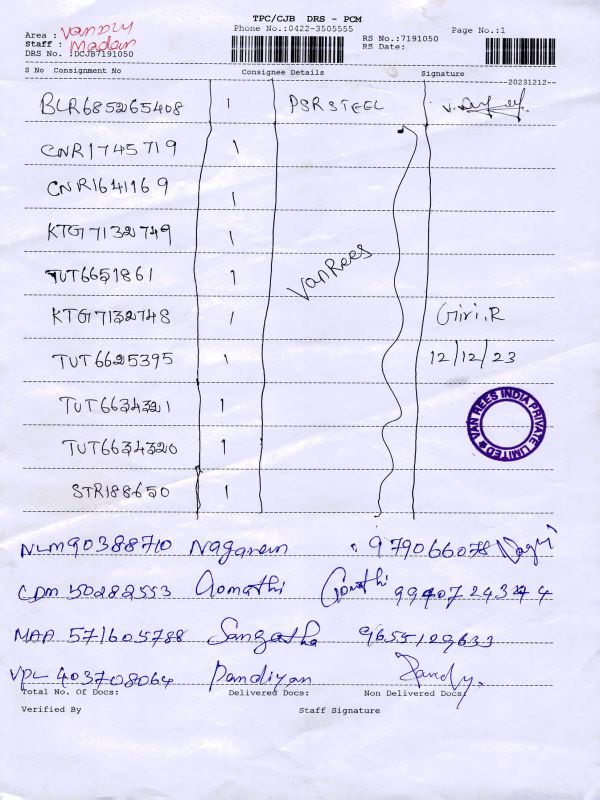 TPC/CJB DRS - PCM
Phone No.:0422-3505555
Page No.:1
Area :
Staff : Madan
DRS No. :DCJB7191050
RS No.:7191050
RS Date:
S No Consignment No Consignee Details Signature
20231212
BLR685265408 1 PSR STEEL
CNR1745719 1
CNR1641169 1
KTG7132749 1
TUT6651861 1
VanRees
KTG7132748 1 Giri.R
TUT6625395 1 12/12/23
TUT6634321 1
VAN REES INDIA PRIVATE LIMITED
TUT6634320 1
STR188650 1
NLM90388710 979066078
CDM 50282553 Gomathi Gomathi 9940724344
MAA 571605788 Sangeetha 9655129633
VPL 403708064 Pandiyan Pandy.
Total No. Of Docs: Delivered Docs: Non Delivered Docs:
Verified By Staff Signature